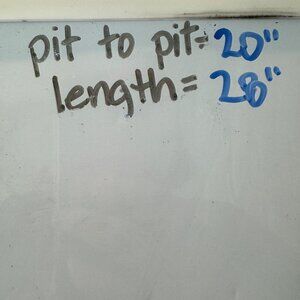 pit to pit= 20"
length= 28"